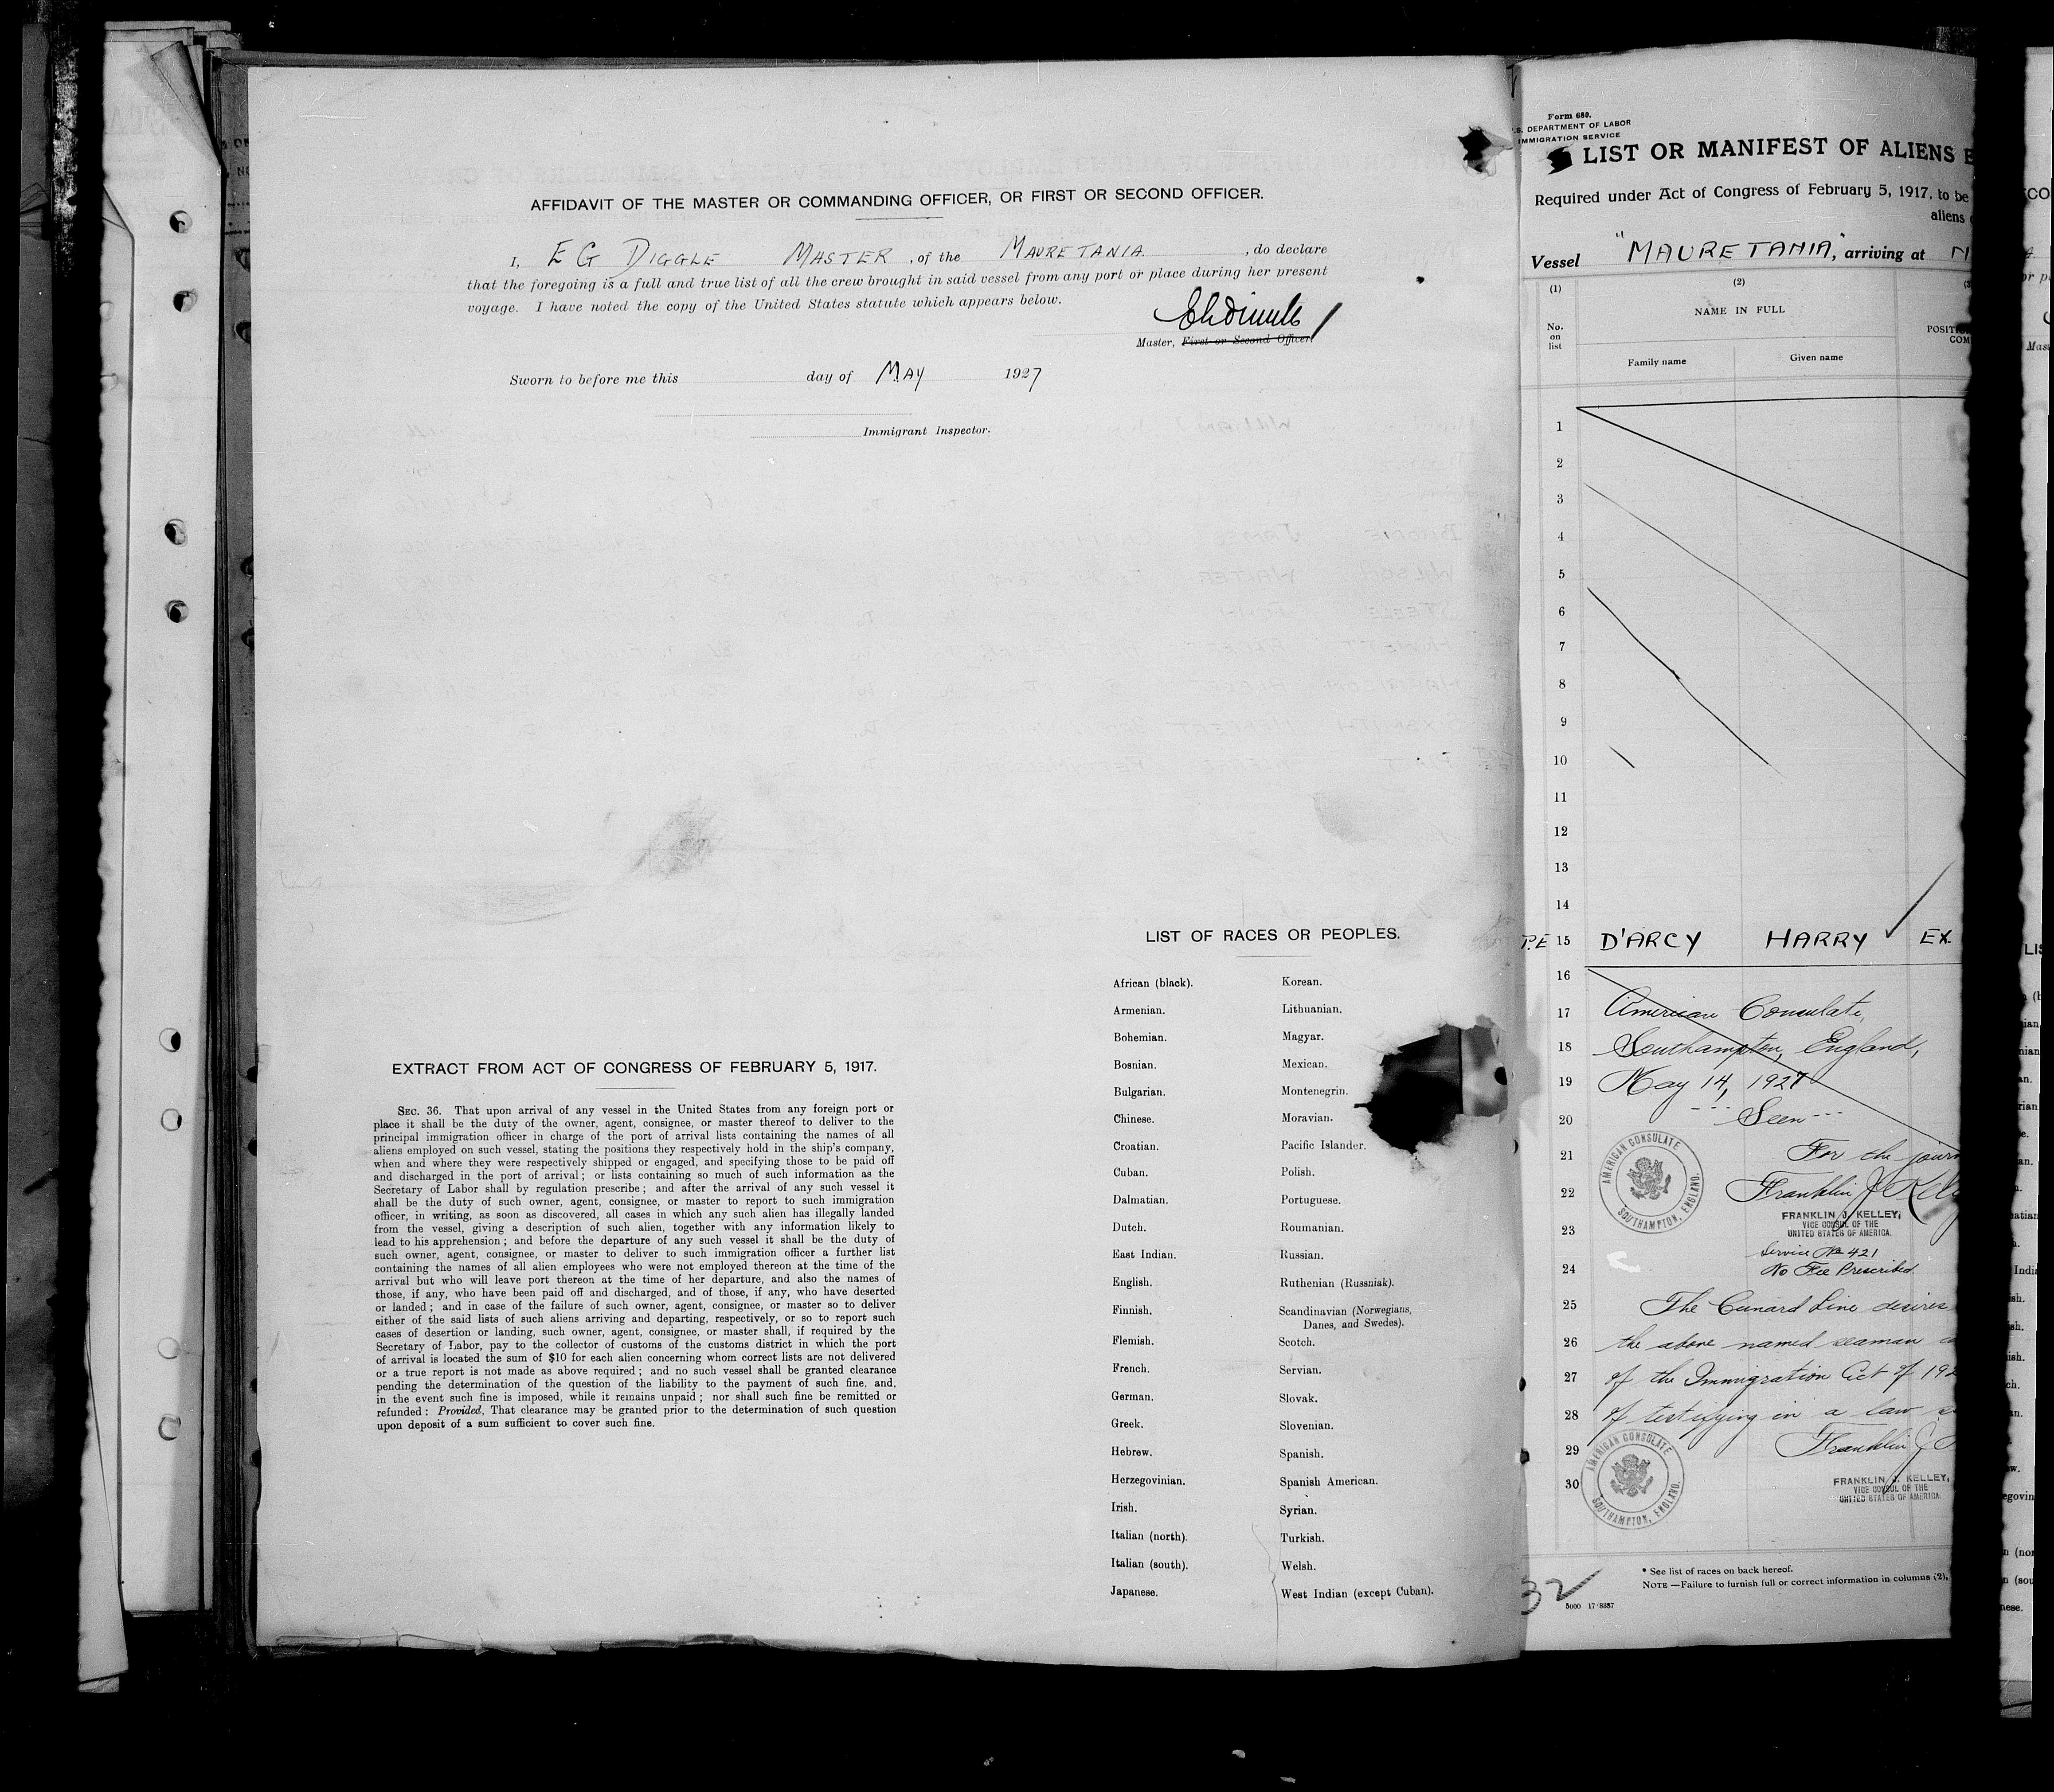 AFFIDAVIT OF THE MASTER OR COMMANDING OFFICER, OR FIRST OR SECOND OFFICER.
I, E G DIGGLE MASTER, of the MAURETANIA, do declare
that the foregoing is a full and true list of all the crew brought in said vessel from any port or place during her present
voyage. I have noted the copy of the United States statute which appears below.
Master, First or Second Officer.
Sworn to before me this day of MAY 1927
Immigrant Inspector.
EXTRACT FROM ACT OF CONGRESS OF FEBRUARY 5, 1917.
SEC. 36. That upon arrival of any vessel in the United States from any foreign port or
place it shall be the duty of the owner, agent, consignee, or master thereof to deliver to the
principal immigration officer in charge of the port of arrival lists containing the names of all
aliens employed on such vessel, stating the positions they respectively hold in the ship's company,
when and where they were respectively shipped or engaged, and specifying those to be paid off
and discharged in the port of arrival; or lists containing so much of such information as the
Secretary of Labor shall by regulation prescribe; and after the arrival of any such vessel it
shall be the duty of such owner, agent, consignee, or master to report to such immigration
officer, in writing, as soon as discovered, all cases in which any such alien has illegally landed
from the vessel, giving a description of such alien, together with any information likely to
lead to his apprehension; and before the departure of any such vessel it shall be the duty of
such owner, agent, consignee, or master to deliver to such immigration officer a further list
containing the names of all alien employees who were not employed thereon at the time of the
arrival but who will leave port thereon at the time of her departure, and also the names of
those, if any, who have been paid off and discharged, and of those, if any, who have deserted
or landed; and in case of the failure of such owner, agent, consignee, or master so to deliver
either of the said lists of such aliens arriving and departing, respectively, or so to report such
cases of desertion or landing, such owner, agent, consignee, or master shall, if required by the
Secretary of Labor, pay to the collector of customs of the customs district in which the port
of arrival is located the sum of $10 for each alien concerning whom correct lists are not delivered
or a true report is not made as above required; and no such vessel shall be granted clearance
pending the determination of the question of the liability to the payment of such fine, and,
in the event such fine is imposed, while it remains unpaid; nor shall such fine be remitted or
refunded: Provided, That clearance may be granted prior to the determination of such question
upon deposit of a sum sufficient to cover such fine.
LIST OF RACES OR PEOPLES.
African (black). Korean.
Armenian. Lithuanian.
Bohemian. Magyar.
Bosnian. Mexican.
Bulgarian. Montenegrin.
Chinese. Moravian.
Croatian. Pacific Islander.
Cuban. Polish.
Dalmatian. Portuguese.
Dutch. Roumanian.
East Indian. Russian.
English. Ruthenian (Russniak).
Finnish. Scandinavian (Norwegians,
Danes, and Swedes).
Flemish. Scotch.
French. Servian.
German. Slovak.
Greek. Slovenian.
Hebrew. Spanish.
Herzegovinian. Spanish American.
Irish. Syrian.
Italian (north). Turkish.
Italian (south). Welsh.
Japanese. West Indian (except Cuban).
Form 680.
U.S. DEPARTMENT OF LABOR
IMMIGRATION SERVICE
LIST OR MANIFEST OF ALIENS E
Required under Act of Congress of February 5, 1917, to be
aliens
Vessel "MAURETANIA", arriving at N
(1) (2) (3
No. on list
NAME IN FULL
POSITI
COM
Family name Given name
1
2
3
4
5
6
7
8
9
10
11
12
13
14
P.E 15 D'ARCY HARRY EX.
16
17 American Consulate,
18 Southampton, England,
19 May 14, 1927
20 --- Seen ---
21 For the journ
22 Franklin J. Kelley
FRANKLIN J. KELLEY,
VICE CONSUL OF THE
UNITED STATES OF AMERICA.
23
AMERICAN CONSULATE
SOUTHAMPTON, ENGLAND.
Service No 421
24 No Fee Prescribed.
25 The Cunard Line desires
26 the above named seaman
27 of the Immigration Act of 192
28 of testifying in a law
29 Franklin J.
30
AMERICAN CONSULATE
SOUTHAMPTON, ENGLAND.
FRANKLIN J. KELLEY,
VICE CONSUL OF THE
UNITED STATES OF AMERICA.
* See list of races on back hereof.
NOTE—Failure to furnish full or correct information in columns (2),
32
5000 17/8387